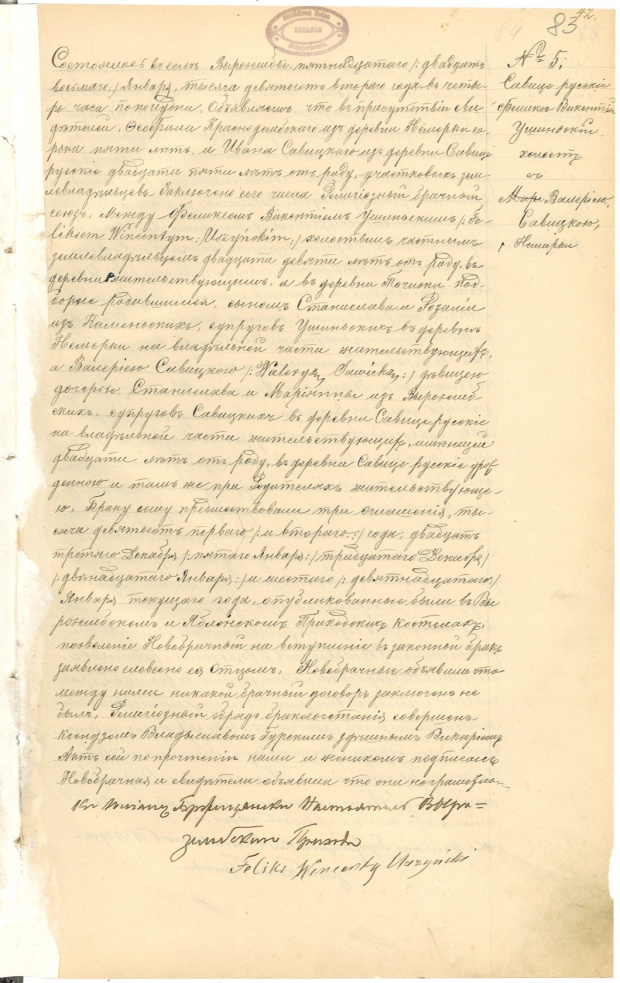 42.
83
Состоялось въ селѣ Вырозембы, пятнадцатаго /: двадцать
восьмаго :/ Января, тысяча девятьсотъ втораго года въ четы-
ре часа пополудни. Объявляемъ что въ присутствіи сви-
дѣтелей, Краснодембскаго изъ деревни Немерки со-
рока пяти лѣтъ, и Ивана Савицкаго изъ деревни Савице
русскіе двадцати пяти лѣтъ отъ роду, участковыхъ зем-
левладѣльцевъ заключено сего числа Религіозный брачный
союзъ, между Феликсомъ Викентымъ Ушинскимъ /: Fe-
liksem Wincentym Uszyńskim :/ холостымъ частнымъ
землевладѣльцемъ двадцати девяти лѣтъ отъ роду, въ
деревни жительствующимъ, а въ деревни Точиски Под-
борне родившимся, сыномъ Станислава и Розаліи
изъ Каменьскихъ, супруговъ Ушинскихъ въ деревнѣ
Немерки на владѣльной части жительствующихъ,
а Валеріею Савицкою /: Waleryą Sawicką :/ дѣвицею
дочерью Станислава и Маріянны изъ Выроземб-
скихъ, супруговъ Савицкихъ въ деревни Савице русскіе
на владѣльной части жительствующихъ, имѣющей
двадцати лѣтъ отъ роду, въ деревни Савице русскіе урож-
денною и тамъ же при Родителяхъ жительствующе-
ю. Браку сему предшествовали три оглашенія, ты-
сяча девятьсотъ перваго /: и втораго :/ года, двадцать
третяго Декабря /: пятаго Января :/ тридцатаго Декабря
/: двѣнадцатаго Января :/ и шестаго /: девятнадцатаго :/
Января текущаго года, опубликованные были въ Вы-
розембскомъ и Яблонскомъ Приходскихъ костелахъ,
позволеніе Новобрачной на вступленіе въ законной бракъ
заявлено словесно ея Отцомъ. Новобрачные объявили что
между ними никакой брачной договоръ заключенъ не
былъ. Религіозный обрядъ бракосочетанія совершенъ
ксендзомъ Владыславомъ Гурскимъ здѣшнымъ Викаріемъ
Актъ сей по прочтеніи нами и женихомъ подписанъ
Новобрачная и свидѣтели объявили что они неграмотны.
Кс. Настоятель Выро-
зембскаго Прихода
Feliks Wincenty Uszyński
№ 5.
Савице русскіе
Феликсъ Викентій
Ушинскій
холостъ
съ
Мар. Валеріею,
Савицкою,
Немерки